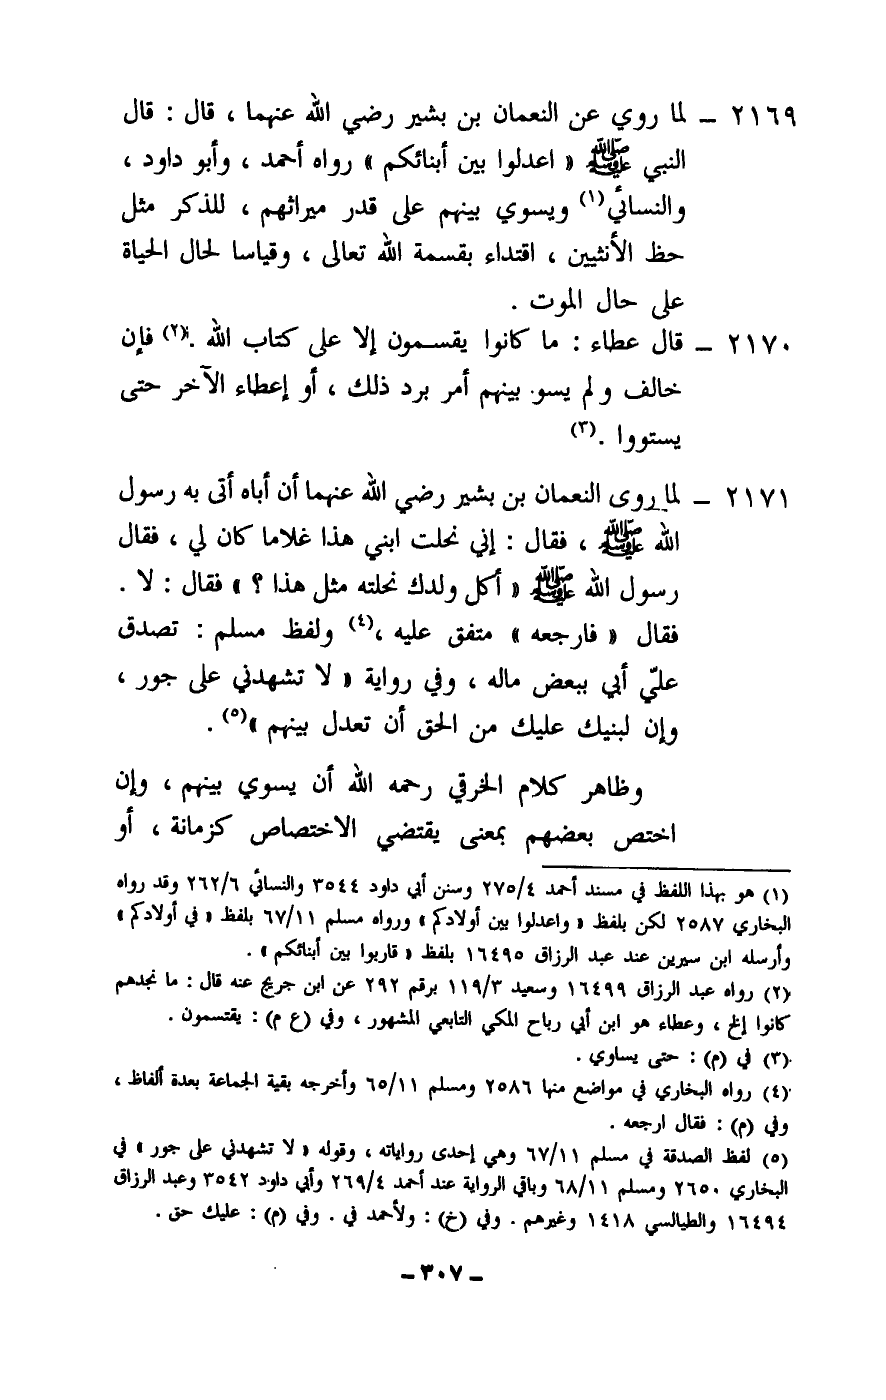 ٢١٦٩ – لما روي عن النعمان بن بشير رضي الله عنهما ، قال : قال
النبي ﷺ « اعدلوا بين أبنائكم » رواه أحمد ، وأبو داود ،
والنسائي(١) ويسوي بينهم على قدر ميراثهم ، للذكر مثل
حظ الأنثيين ، اقتداء بقسمة الله تعالى ، وقياسا لحال الحياة
على حال الموت .
٢١٧٠ – قال عطاء : ما كانوا يقسمون إلا على كتاب الله .(٢) فإن
خالف ولم يسو بينهم أمر برد ذلك ، أو إعطاء الآخر حتى
يستووا .(٣)
٢١٧١ – لما روى النعمان بن بشير رضي الله عنهما أن أباه أتى به رسول
الله ﷺ ، فقال : إني نحلت ابني هذا غلاما كان لي ، فقال
رسول الله ﷺ « أكل ولدك نحلته مثل هذا ؟ » فقال : لا .
فقال « فارجعه » متفق عليه ،(٤) ولفظ مسلم : تصدق
عليّ أبي ببعض ماله ، وفي رواية « لا تشهدني على جور ،
وإن لبنيك عليك من الحق أن تعدل بينهم »(٥) .
وظاهر كلام الخرقي رحمه الله أن يسوي بينهم ، وإن
اختص بعضهم بمعنى يقتضي الاختصاص كزمانة ، أو
(١) هو بهذا اللفظ في مسند أحمد ٢٧٥/٤ وسنن أبي داود ٣٥٤٤ والنسائي ٢٦٢/٦ وقد رواه
البخاري ٢٥٨٧ لكن بلفظ « واعدلوا بين أولادكم » ورواه مسلم ٦٧/١١ بلفظ « في أولادكم »
وأرسله ابن سيرين عند عبد الرزاق ١٦٤٩٥ بلفظ « قاربوا بين أبنائكم » .
(٢) رواه عبد الرزاق ١٦٤٩٩ وسعيد ١١٩/٣ برقم ٢٩٢ عن ابن جريج عنه قال : ما نجدهم
كانوا إلخ ، وعطاء هو ابن أبي رباح المكي التابعي المشهور ، وفي (ع م) : يقتسمون .
(٣) في (م) : حتى يساوي .
(٤) رواه البخاري في مواضع منها ٢٥٨٦ ومسلم ٦٥/١١ وأخرجه بقية الجماعة بعدة ألفاظ ،
وفي (م) : فقال ارجعه .
(٥) لفظ الصدقة في مسلم ٦٧/١١ وهي إحدى رواياته ، وقوله « لا تشهدني على جور » في
البخاري ٢٦٥٠ ومسلم ٦٨/١١ وباقي الرواية عند أحمد ٢٦٩/٤ وأبي داود ٣٥٤٢ وعبد الرزاق
١٦٤٩٤ والطيالسي ١٤١٨ وغيرهم . وفي (خ) : ولأحمد في . وفي (م) : عليك حق .
– ٣٠٧ –